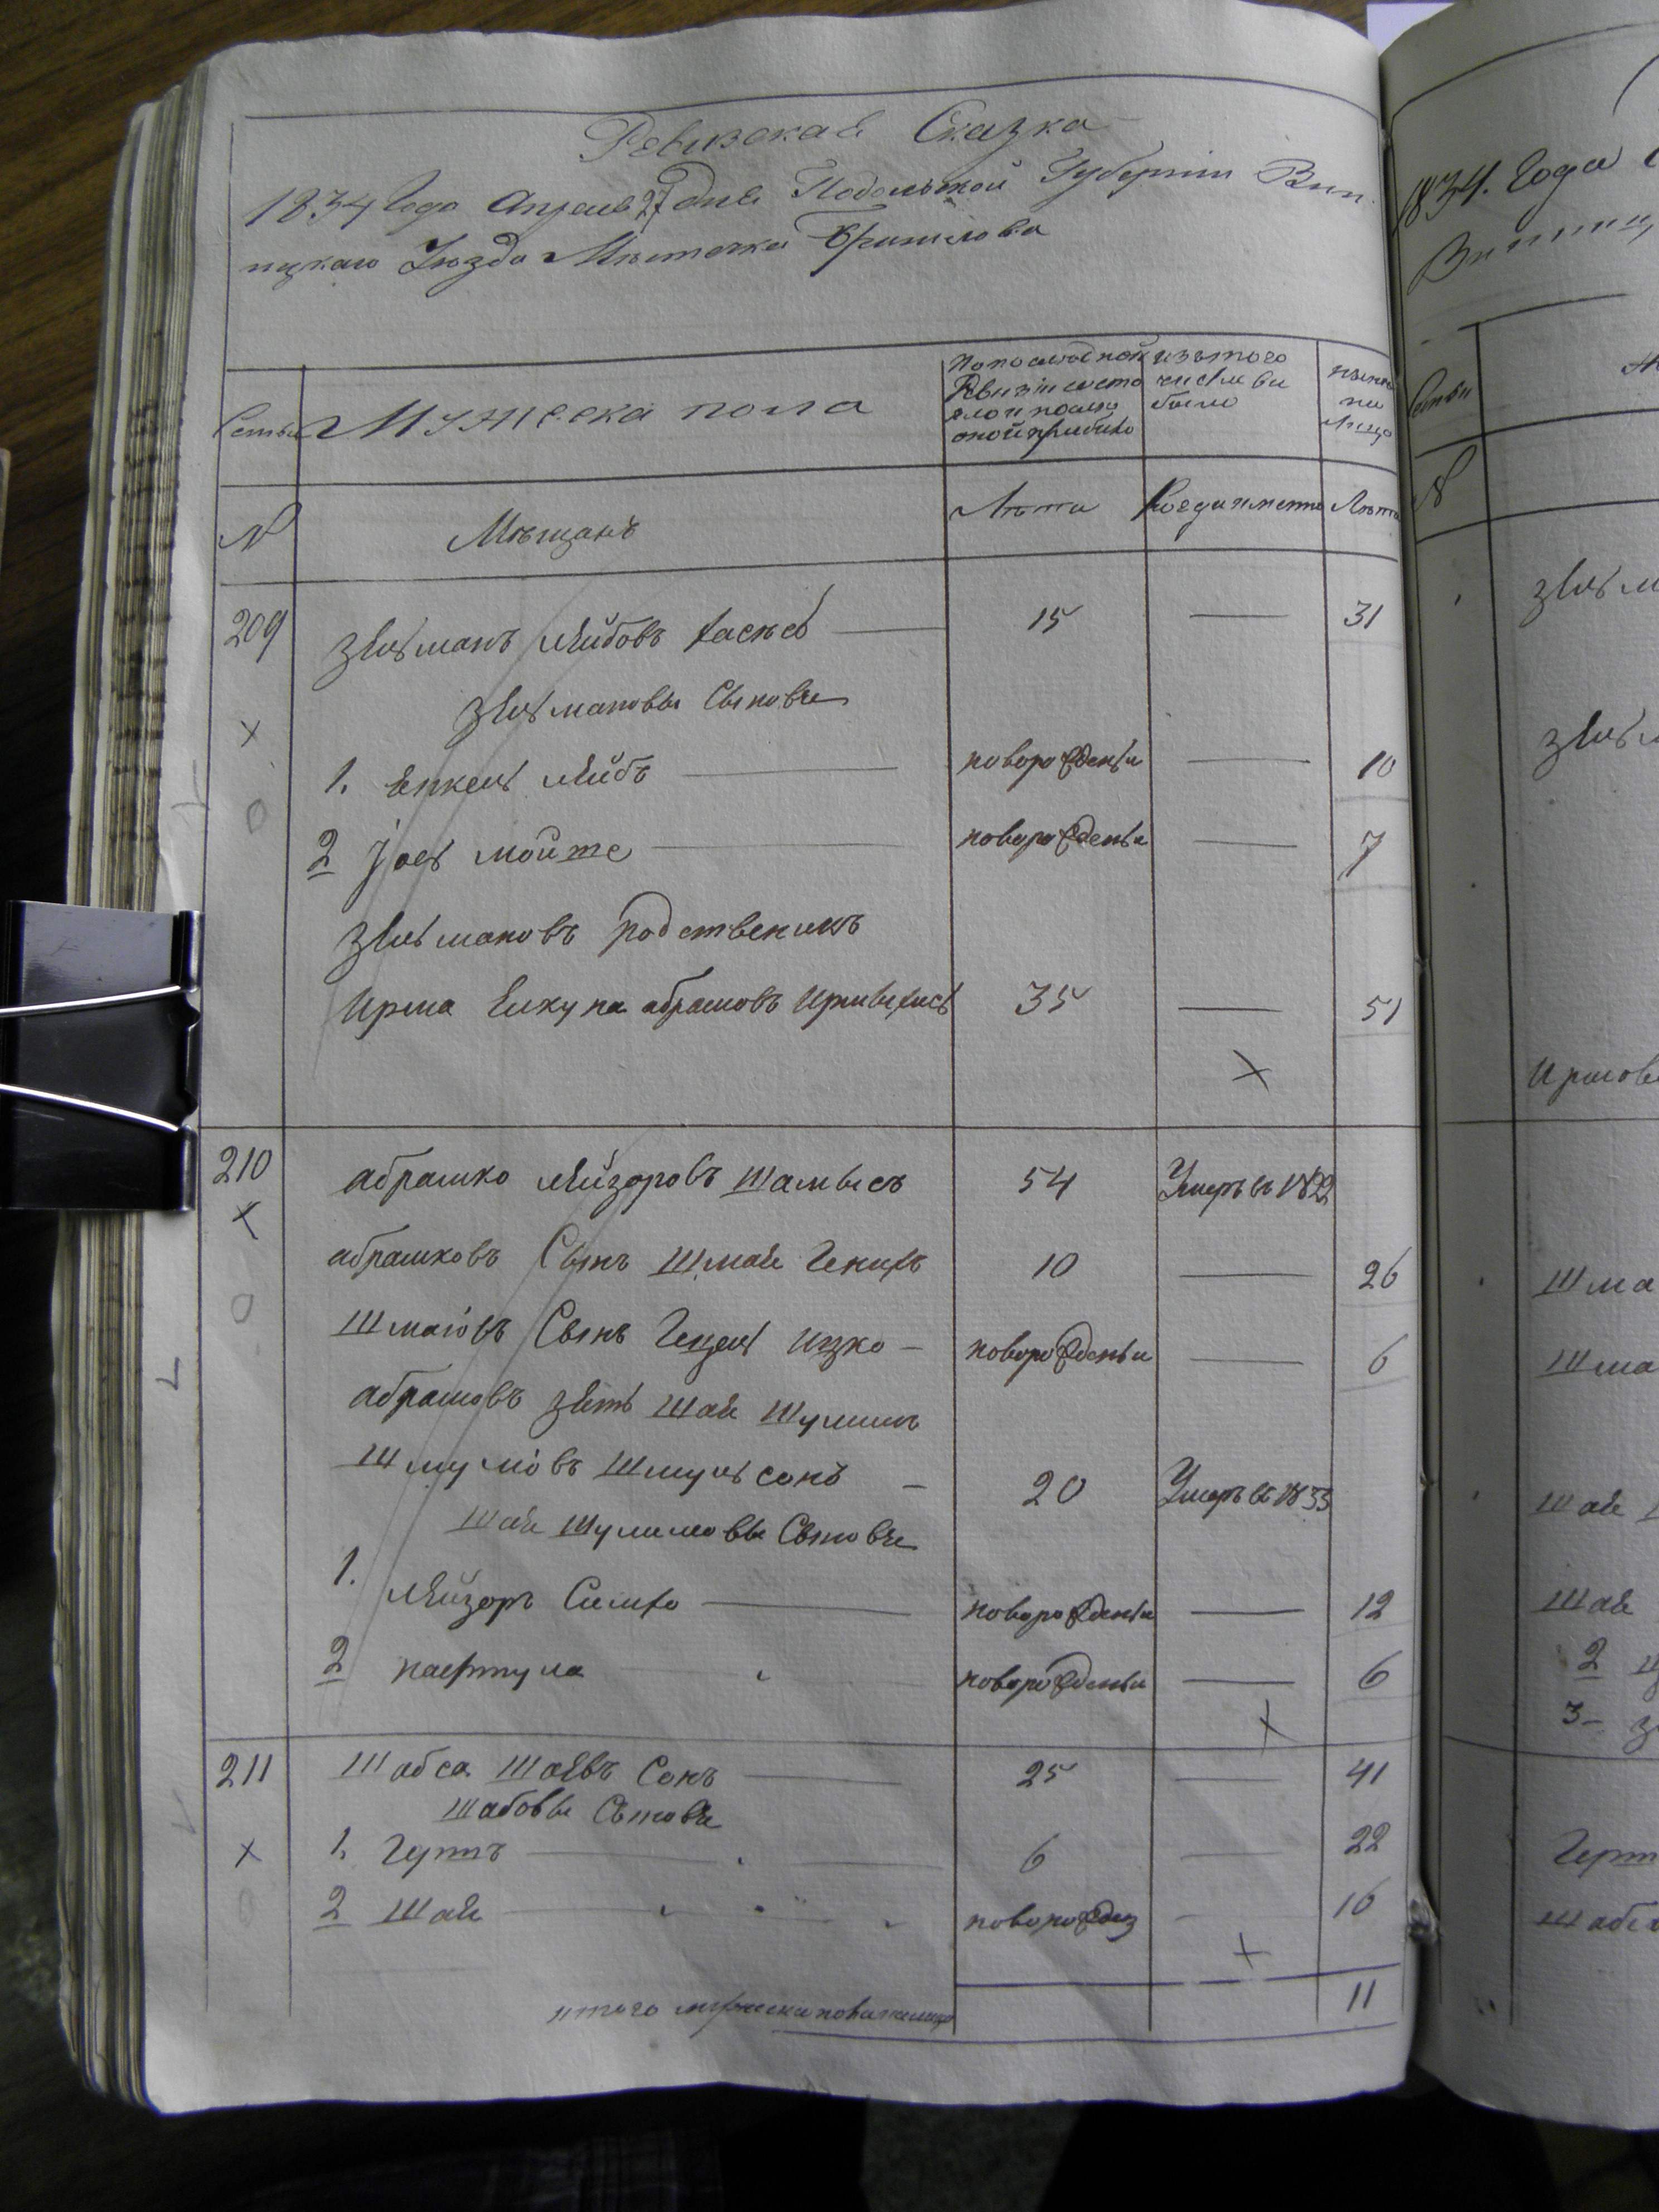 Ревизская Сказка
1834 Года Апреля 27 дня Подольской Губернiи Вин
ницкаго Уѣзда Мѣстечка Браилова
Семьи
Мужеска пола
По последной
Ревизiи состо
яло и после
оной прибыло
изътого
числа вы
было
ныне
на
лицо
№
Мѣщанъ
Лѣта
Когда именно
Лѣта
209
Зельманъ Лейбовъ
15
31
Зельмановы Сыновя
1. Енкель Лейбъ
новорожденъи
10
2 Iось Мойше
новорожденъи
7
Зельмановъ родственикъ
Ирша абрамовъ
35
51
210
абрамко Лейзоровъ Шамысъ
54
Умеръ въ 1822
абрамковъ Сынъ Шмая Генихъ
10
26
Шмаiовъ Сынъ Гецель Ицко
новорожденъи
6
абрамовъ зять Шая Шулимъ
Шмулiовъ Шмульсонъ
20
Умеръ въ 1833
Шая Шулимовы Сыновя
1. Лейзоръ Симхо
новорожденъи
12
2 нафтула
новорожденъи
6
211
Шабса Шаявъ Сонъ
25
41
Шабовы Сыновя
1. Гершъ
6
22
2 Шая
16
итого мужеска пола налицо
11
1834. Года
Винниц
Семьи
№
Зельм
Зельм
Иршов
Шма
Шма
Шая
Шая
2
3
Герш
Шабс